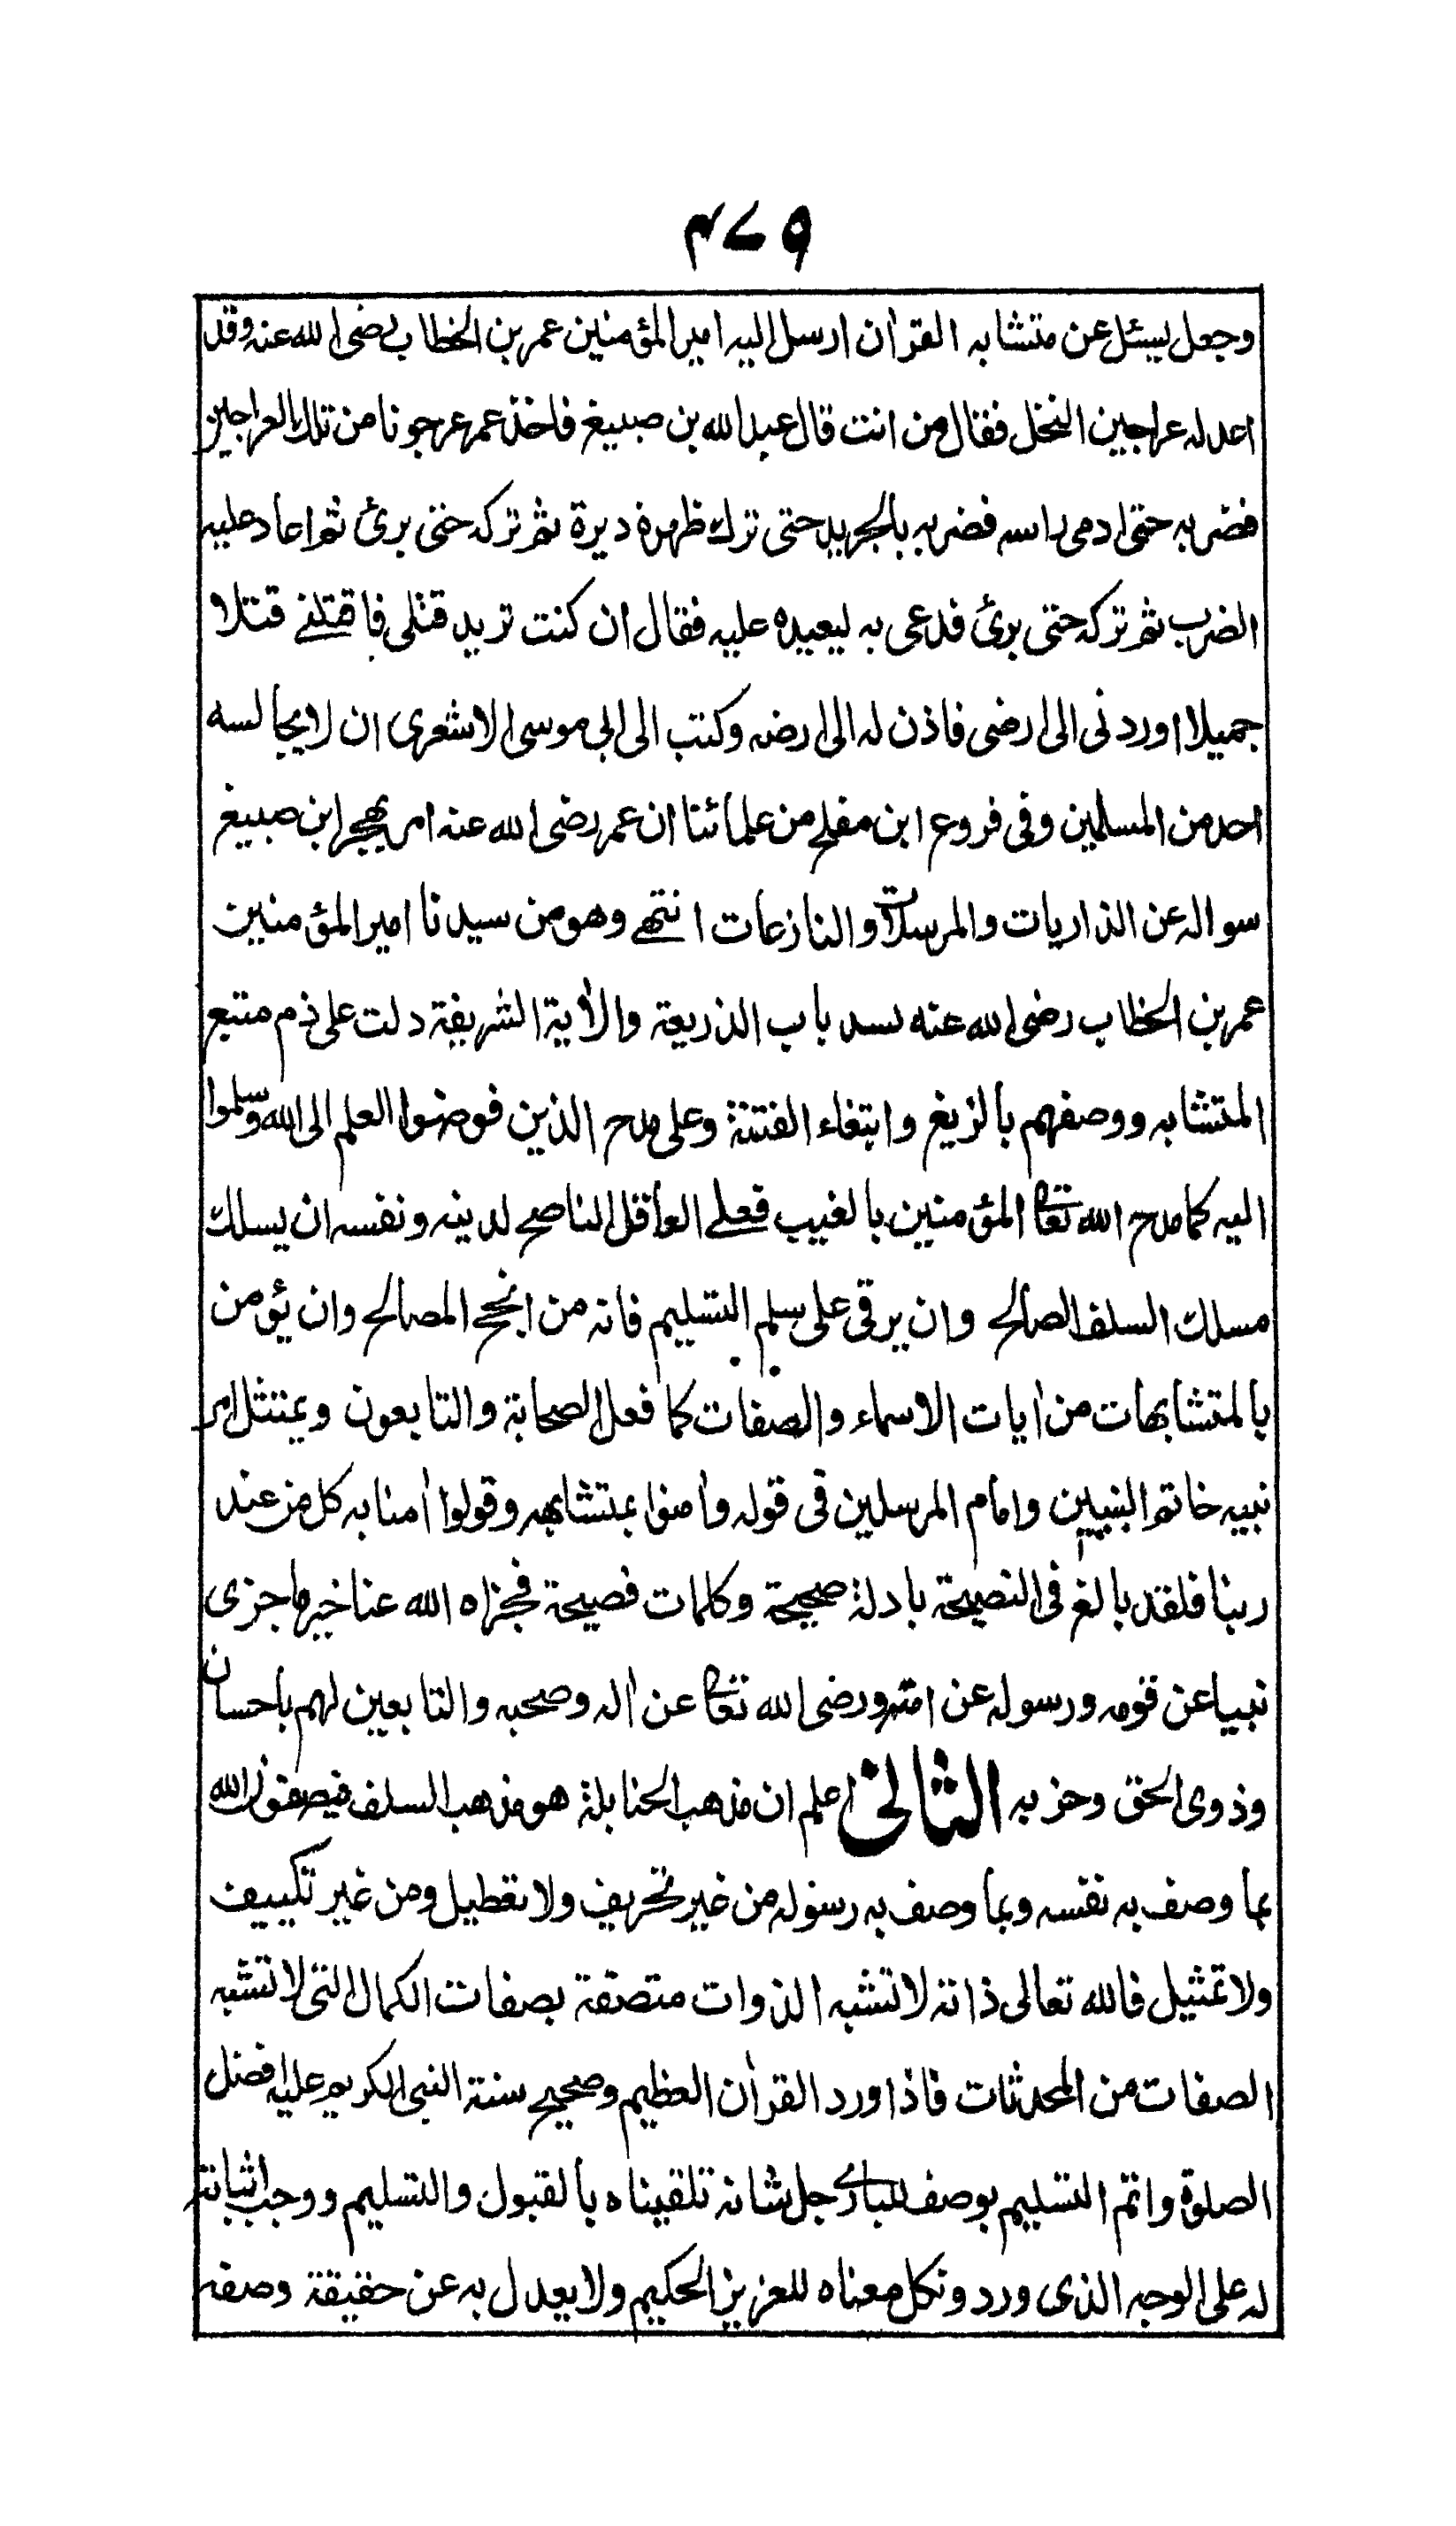 ۴۷۹
وجعل يسئل عن متشابه القراٰن ارسل اليه امير المؤمنين عمر بن الخطاب رضى الله عنه وقد
اعد له عراجين النخل فقال من انت قال عبد الله بن صبيغ فاخذ عمر عرجونا من تلك العراجين
فضربه حتى ادمى راسه فضربه بالجريد حتى ترك ظهره دبرة ثم تركه حتى برئ ثم اعاد عليه
الضرب ثم تركه حتى برئ فدعى به ليعيده عليه فقال ان كنت تريد قتلى فاقتلنے قتلا
جميلا اوردنى الى ارضى فاذن له الى ارضه وكتب الى ابى موسى الاشعرى ان لا يجالسه
احد من المسلمين وفى فروع ابن مفلح من علمائنا ان عمر رضى الله عنه امر بهجر ابن صبيغ
سواله عن الذاريات والمرسلات والنازعات انتهے وهو من سيدنا امير المؤمنين
عمر بن الخطاب رضى الله عنه لسد باب الذريعة والاٰية الشريفة دلت على ذم متبع
المتشابه ووصفهم بالزيغ وابتغاء الفتنة وعلى مدح الذين فوضوا العلم الى الله وسلموا
اليه كما مدح الله تعالى المؤمنين بالغيب فعلے العاقل الناصح لدينه ونفسه ان يسلك
مسلك السلف الصالح وان يرقى على سلم التسليم فانه من انجح المصالح وان يؤمن
بالمتشابهات من اٰيات الاسماء والصفات كما فعل الصحابة والتابعون ويمتثل امر
نبيه خاتم النبيين وامام المرسلين فى قوله واٰمنوا بمتشابهه وقولوا اٰمنا به كل من عند
ربنا فلقد بالغ فى النصيحة بادلة صحيحة وكلمات فصيحة فجزاه الله عنا خير ما جزى
نبيا عن قومه ورسوله عن امته ورضى الله تعالى عن اٰله وصحبه والتابعين لهم باحسان
وذوى الحق وحزبه الثانى اعلم ان مذهب الحنابلة هو مذهب السلف فيصفون الله
بما وصف به نفسه وبما وصف به رسوله من غير تحريف ولا تعطيل ومن غير تكييف
ولا تمثيل فالله تعالى ذاته لا تشبه الذوات متصفة بصفات الكمال التى لا تشبه
الصفات من المحدثات فاذا ورد القراٰن العظيم وصحيح سنة النبى الكريم عليه افضل
الصلوة واتم التسليم بوصف للبارے جل شانه تلقيناه بالقبول والتسليم ووجب اثباته
له على الوجه الذى ورد ونكل معناه للعزيز الحكيم ولا يعدل به عن حقيقة وصفه